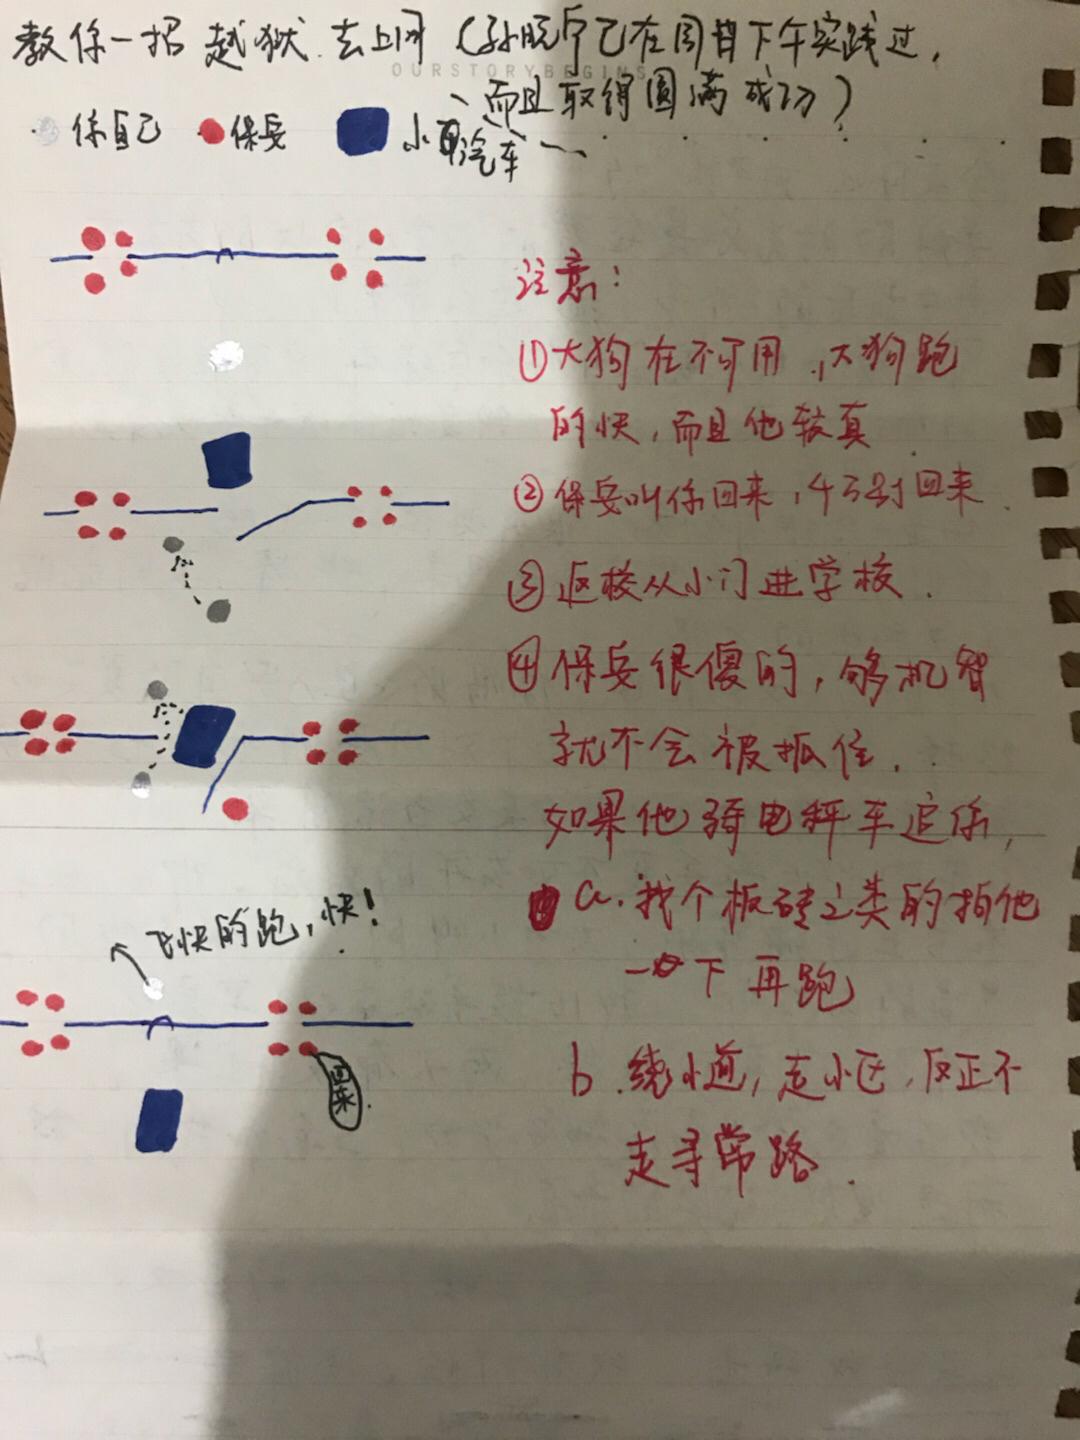 教你一招 越狱 去上网 (孙晓宁已在周日下午实践过,
OURSTORYBEGINS
而且取得圆满成功)
你自己 保安 小汽车
注意:
①大狗在不可用,大狗跑
的快,而且他较真
②保安叫你回来,千万别回来
③返校从小门进学校.
④保安很傻的,够机智
就不会被抓住.
如果他骑电瓶车追你,
a.找个板砖之类的拍他
一下再跑
b.绕小道,走小区,反正不
走寻常路.
飞快的跑,快!
回来